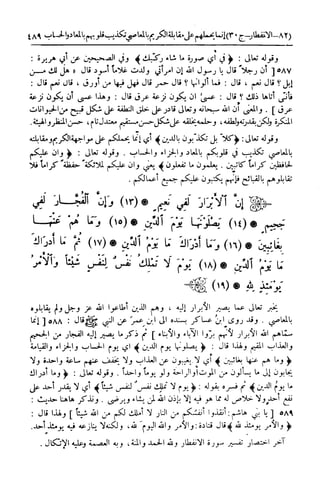 (٨٢ – الانفطار – ج ٣٠) إنما يحملهم على مقابلة الكريم بالمعاصي تكذيب قلوبهم بالمعاد والحساب ٤٨٩
وقوله تعالى : ﴿ في أي صورة ما شاء ركبك ﴾ وفي الصحيحين عن أبي هريرة :
٥٨٧ [ أن رجلاً قال يا رسول الله إن امرأتي ولدت غلاماً أسود قال « هل لك من
إبل ؟ قال نعم ، قال : فما ألوانها ؟ قال حمر قال فهل فيها من أورق ، قال نعم قال :
فأنى أتاها ذلك ؟ قال : عسى أن يكون نزعة عرق قال : وهذا عسى أن يكون نزعة
عرق ] . والمعنى أن الله سبحانه وتعالى قادر على خلق النطفة على شكل قبيح من الحيوانات
المنكرة ولكن بقدرته ولطفه ، وحلمه يخلقه على شكل حسن مستقيم معتدل تام ، حسن المنظر والهيئة.
وقوله تعالى: ﴿ كلا بل تكذبون بالدين ﴾ أي إنما يحملكم على مواجهة الكريم ومقابلته
بالمعاصي تكذيب في قلوبكم بالمعاد والجزاء والحساب . وقوله تعالى : ﴿ وإن عليكم
لحافظين كراماً كاتبين . يعلمون ما تفعلون ﴾ يعني وإن عليكم لملائكة حفظة كراماً فلا
تقابلوهم بالقبائح فإنهم يكتبون عليكم جميع أعمالكم .
﴿ إِنَّ ٱلْأَبْرَارَ لَفِى نَعِيمٍ * (١٣) وَإِنَّ ٱلْفُجَّارَ لَفِى
جَحِيمٍ * (١٤) يَصْلَوْنَهَا يَوْمَ ٱلدِّينِ * (١٥) وَمَا هُمْ عَنْهَا
بِغَآئِبِينَ * (١٦) وَمَآ أَدْرَاكَ مَا يَوْمُ ٱلدِّينِ * (١٧) ثُمَّ مَآ أَدْرَاكَ
مَا يَوْمُ ٱلدِّينِ * (١٨) يَوْمَ لَا تَمْلِكُ نَفْسٌ لِّنَفْسٍ شَيْئًا وَٱلْأَمْرُ
يَوْمَئِذٍ لِّلَّهِ * (١٩) ﴾
يخبر تعالى عما يصير الأبرار إليه ، وهم الذين أطاعوا الله عز وجل ولم يقابلوه
بالمعاصي . وقد روى ابن عساكر بسنده الى ابن عمر عن النبي ﷺ قال : ٥٨٨ [ إنما
سماهم الله الأبرار لأنهم بروا الآباء والأبناء ] ثم ذكر ما يصير إليه الفجار من الجحيم
والعذاب المقيم ولهذا قال : ﴿ يصلونها يوم الدين ﴾ أي يوم الحساب والجزاء والقيامة
﴿ وما هم عنها بغائبين ﴾ أي لا يغيبون عن العذاب ولا يخفف عنهم ساعة واحدة ولا
يجابون إلى ما يسألون من الموت أو الراحة ولو يوماً واحداً . وقوله تعالى : ﴿ وما أدراك
ما يوم الدين ﴾ ثم فسره بقوله : ﴿ يوم لا تملك نفس لنفس شيئاً ﴾ أي لا يقدر أحد على
نفع أحد ولا خلاص له مما هو فيه إلا بإذن الله لمن يشاء ويرضى . ونذكر هاهنا حديث :
٥٨٩ [ يا بني هاشم : أنقذوا أنفسكم من النار لا أملك لكم من الله شيئاً ] ولهذا قال :
﴿ والأمر يومئذ لله ﴾ قال قتادة : والأمر والله اليوم لله، ولكنه لا ينازعه فيه يومئذ أحد.
آخر اختصار تفسير سورة الانفطار ولله الحمد والمنة ، وبه العصمة وعليه الاتكال .